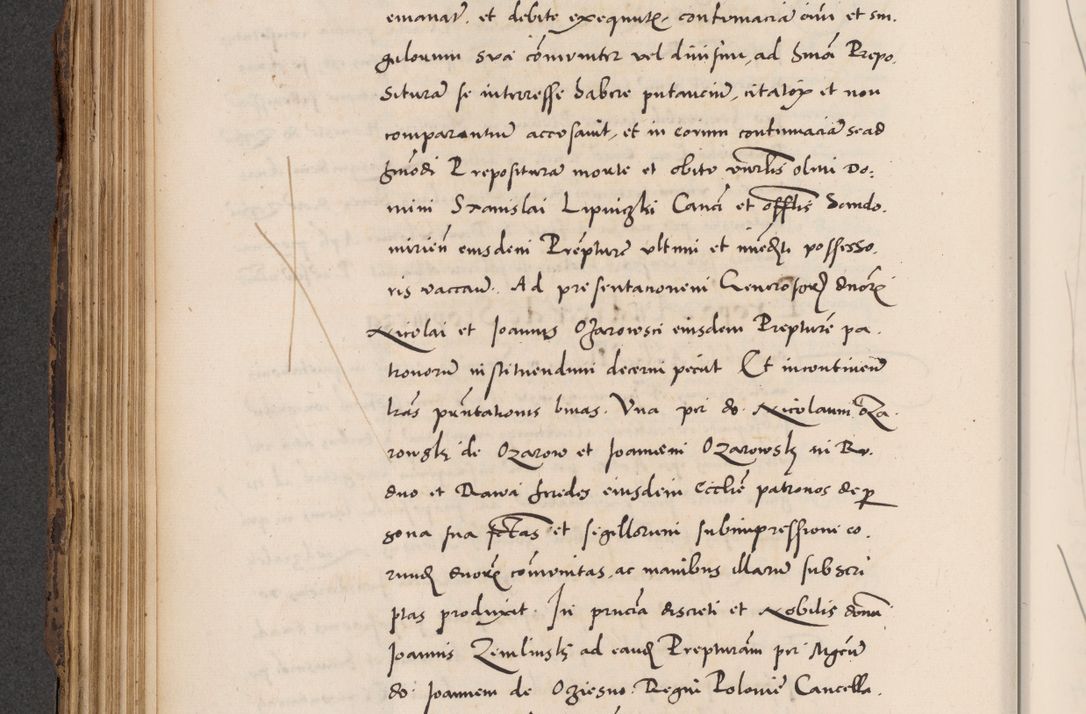 emanat. et debite exequut. contumacia oim et sin.
gulorum sua comuniter vel divisim, ad hmoi Prepo.
situram se interesse habere putancium, citatorum et non
comparentium accusavit, et in eorum contumaciam sead
hmodi Prepositura morte et obitu vnrlis olim Do:
mini Stanislai Lipniczki Canci et offtis Sando.
mirien eiusdem Prepture ultimi et immedti possesso.
ris vaccan. Ad presentanonem Generosorum dnor
Nicolai et Joannis Ozarowsci eiusdem Prepture pa.
tronorum instituendum decerni peciit Et incontinenti
lras pnntationis binas. Una per do. Nicolaum Oza.
rowski de Ozarow et Joannem Ozarowski in
dno et Rawa heredes eiusdem Ecclie patronos de per
sona sua fctas et segillorum subimpressione eo.
rund dnor comunitas, ac manibus illarum subscri
ptas produxit. In pncia discreti et Nobilis domi
Joannis Zemlinski ad eand Prepturam per Mgcum
do: Joannem de Oziesno Regni Polonie Cancella.